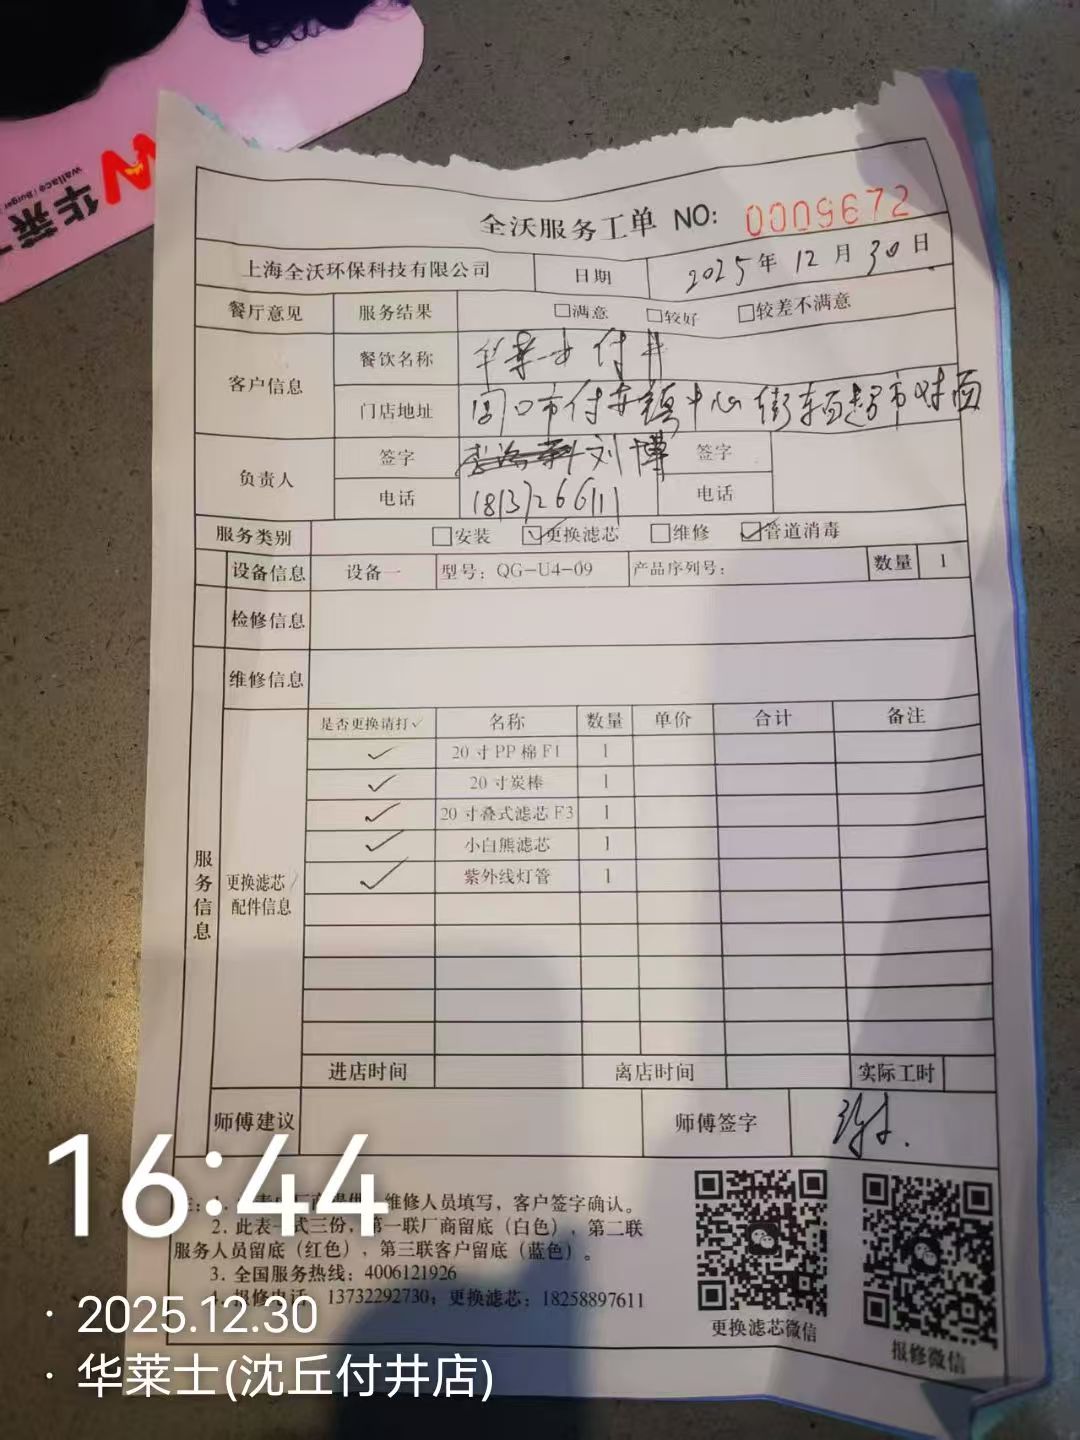 华莱
wallace / Burger
全沃服务工单 NO: 0009672
上海全沃环保科技有限公司 日期 2025年12月30日
餐厅意见 服务结果 □满意 □较好 □较差不满意
客户信息 餐饮名称 华莱士付井
门店地址 周口市付井镇中心街 超市对面
负责人 签字 刘博 签字
电话 18137266111 电话
服务类别 □安装 ☑更换滤芯 □维修 ☑管道消毒
设备信息 设备一 型号：QG-U4-09 产品序列号： 数量 1
检修信息
维修信息
服务信息
更换滤芯/配件信息
是否更换请打✓ 名称 数量 单价 合计 备注
✓ 20寸PP棉F1 1
✓ 20寸炭棒 1
✓ 20寸叠式滤芯F3 1
✓ 小白熊滤芯 1
✓ 紫外线灯管 1
进店时间 离店时间 实际工时
师傅建议 师傅签字
注：1. 维修人员填写，客户签字确认。
2. 此表一式三份，第一联厂商留底（白色），第二联
服务人员留底（红色），第三联客户留底（蓝色）。
3. 全国服务热线：4006121926
4. 报修电话：13732292730；更换滤芯：18258897611
更换滤芯微信
报修微信
16:44
· 2025.12.30
· 华莱士(沈丘付井店)